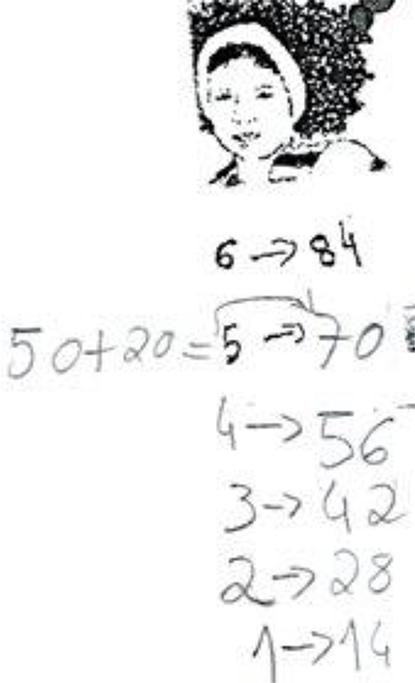 6 → 84
50+20=5 → 70
4 → 56
3 → 42
2 → 28
1 → 14